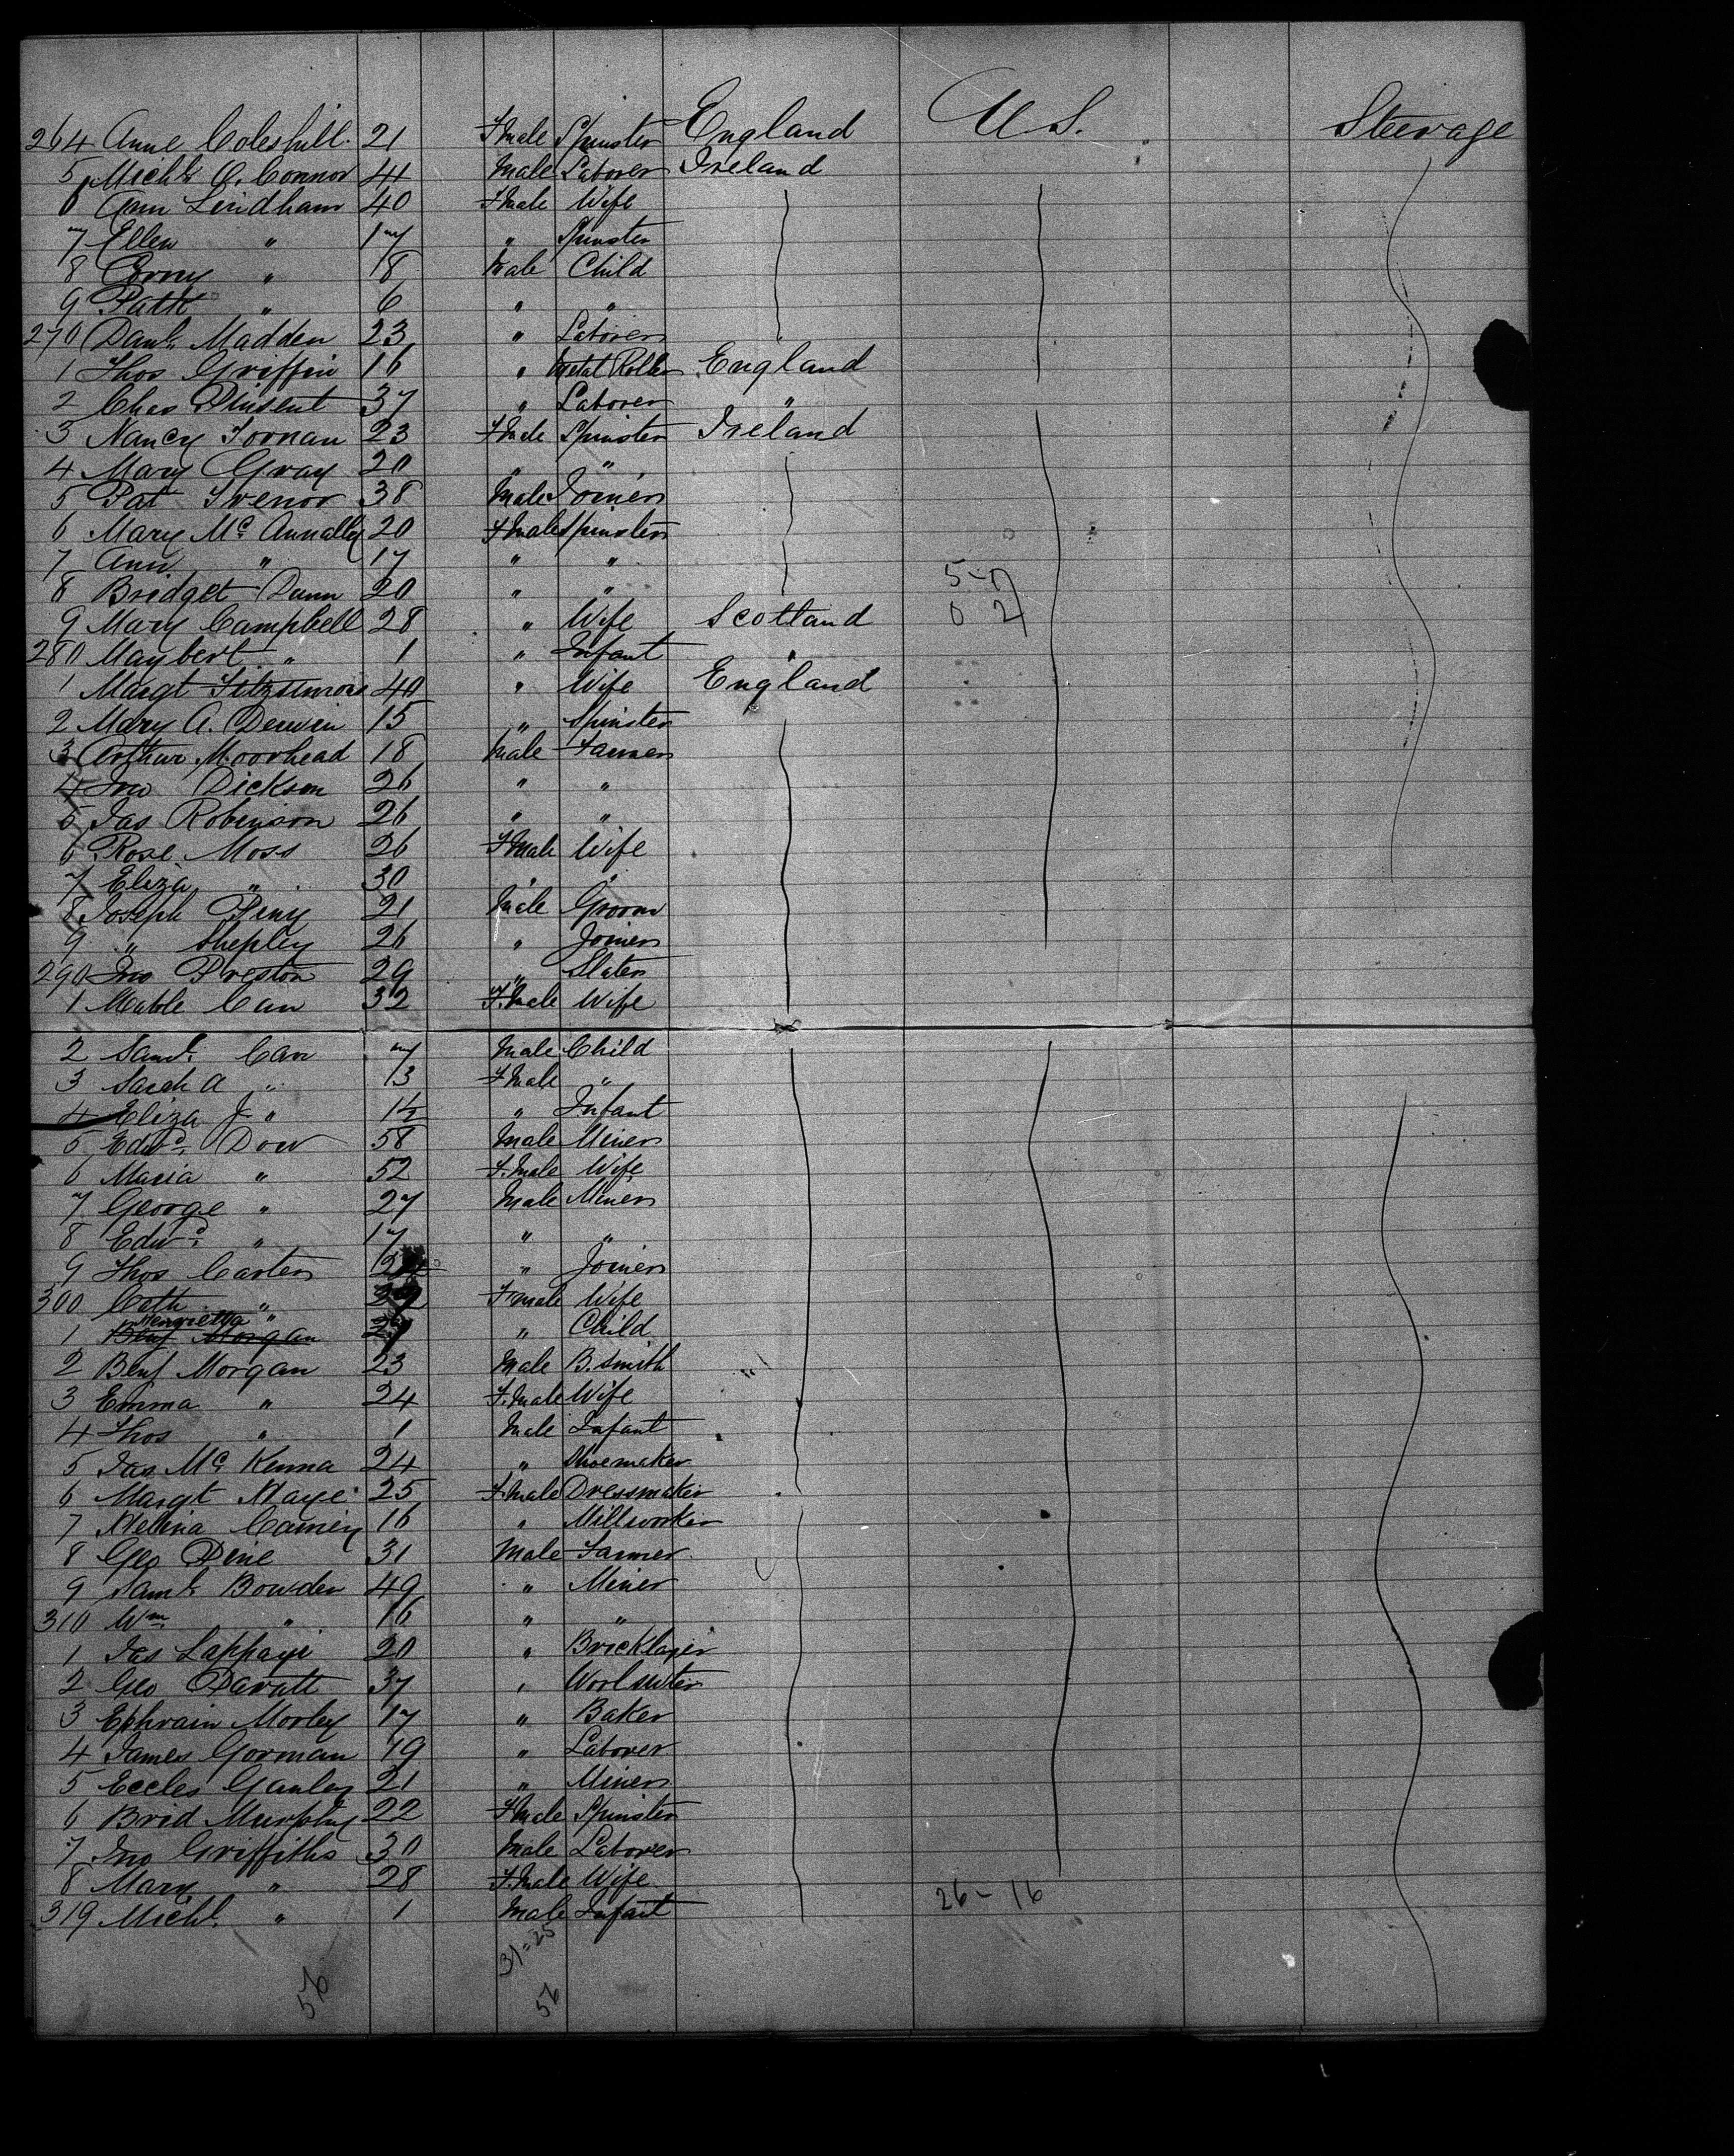 264 Anne Coleshill. 21 Fmale Spinster England U S. Steerage
5 Michl O. Connor 44 Male Laborer Ireland
6 Ann Lindham 40 Fmale Wife
7 Ellen " 17 " Spinster
8 Corny " 8 Male Child
9 Patk " 6 " "
270 Danl. Madden 23 " Laborer
1 Thos Griffin 16 " Metal Roller England
2 Chas Pinsent 37 " Laborer "
3 Nancy Fornan 23 Fmale Spinster Ireland
4 Mary Gray 20 " "
5 Pat Trenor 38 Male Joiner
6 Mary Mc Annally 20 Fmale Spinster
7 Ann " 17 " "
8 Bridget Dunn 20 " "
9 Mary Campbell 28 " Wife Scotland
280 Maybert " 1 " Infant "
1 Margt Fitzsimons 40 " Wife England
2 Mary A. Derwin 15 " Spinster
3 Arthur Moorhead 18 Male Farmer
4 Jno Dickson 26 " "
5 Jas Robinson 26 " "
6 Rose Moss 26 Fmale Wife
7 Eliza " 30 " "
8 Joseph Piny 21 Male Groom
9 " Shepley 26 " Joiner
290 Jno Preston 29 " Slater
1 Mable Carr 32 F.male Wife
2 Saml. Carr 7 Male Child
3 Sarah A " 3 Fmale "
4 Eliza J " 1½ " Infant
5 Edwd. Dow 58 Male Miner
6 Maria " 52 F.male Wife
7 George " 27 Male Miner
8 Edwd. " 17 " "
9 Thos Carter " Joiner
300 Cath " Fmale Wife
1 Henrietta " " Child
Benj Morgan
2 Benj Morgan 23 Male B.smith
3 Emma " 24 F.male Wife
4 Thos " 1 Male Infant
5 Jas Mc Kenna 24 " Shoemaker
6 Margt Maye 25 Fmale Dressmaker
7 Melina 16 " Millworker
8 Geo Pine 31 Male Farmer
9 Saml Bowden 49 " Miner
310 Wm. " 16 " "
1 Jas Lappage 20 " Bricklayer
2 Geo Paratt 37 "
3 Ephraim Morley 17 " Baker
4 James Gorman 19 " Laborer
5 Eccles Ganley 21 " Miner
6 Brid Murphy 22 Fmale Spinster
7 Jno Griffiths 30 Male Laborer
8 Mary " 28 F.male Wife
319 Michl. " 1 Male Infant
26 - 16
31 = 25
56
56